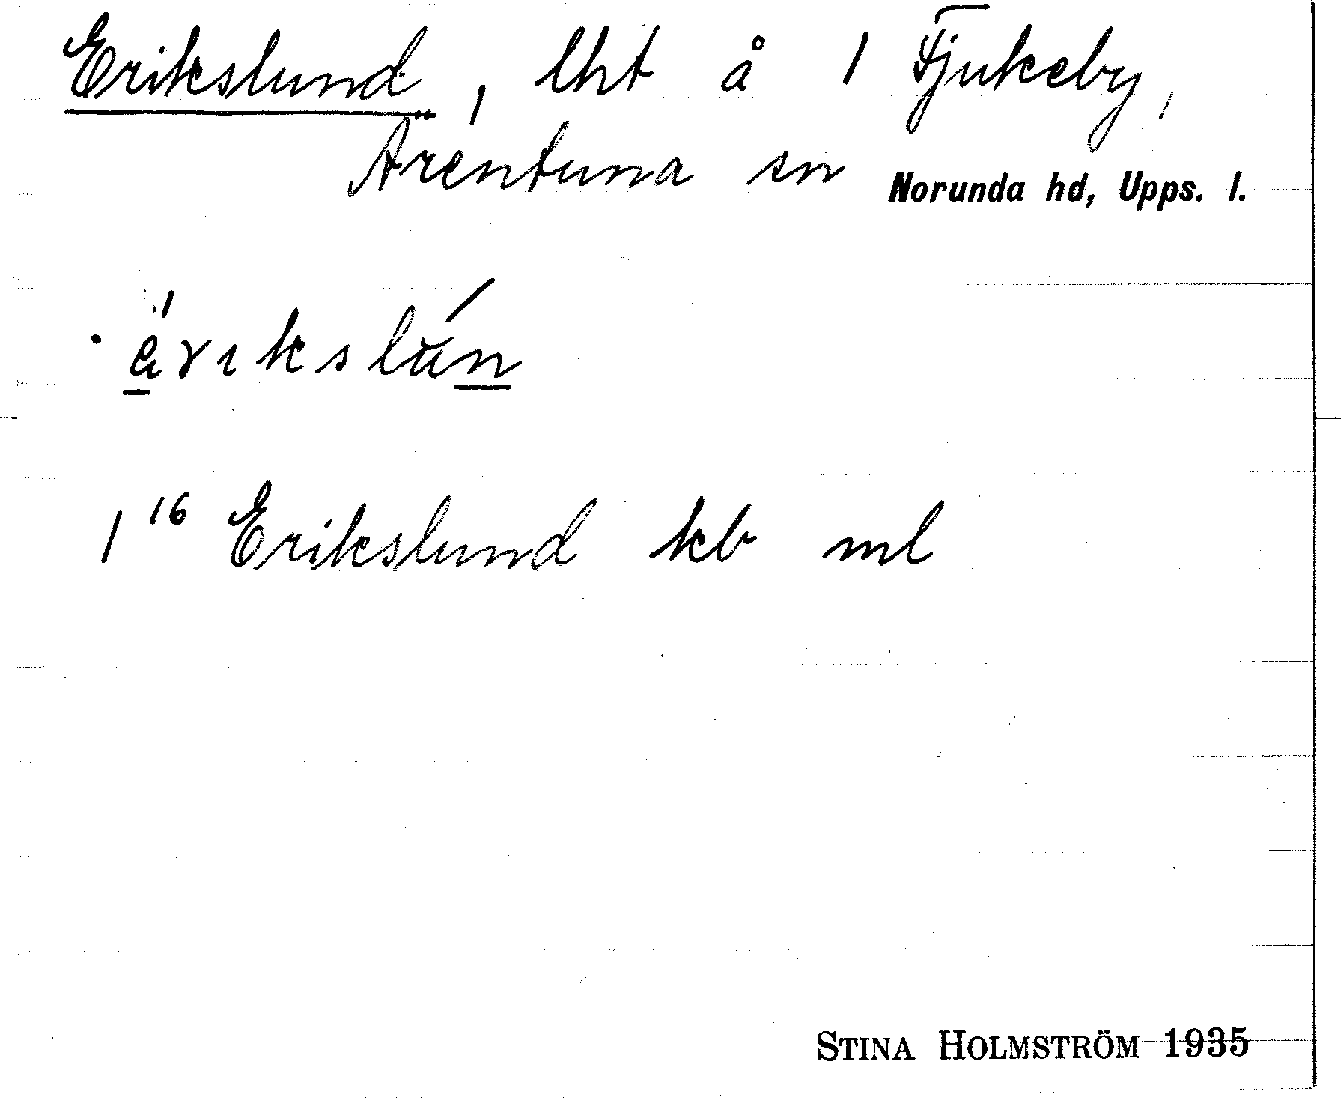 Erikslund, lht å 1 Fjukeby,
Ärentuna sn Norunda hd, Upps. l.
1 16 Erikslund kb ml
STINA HOLMSTRÖM 1935